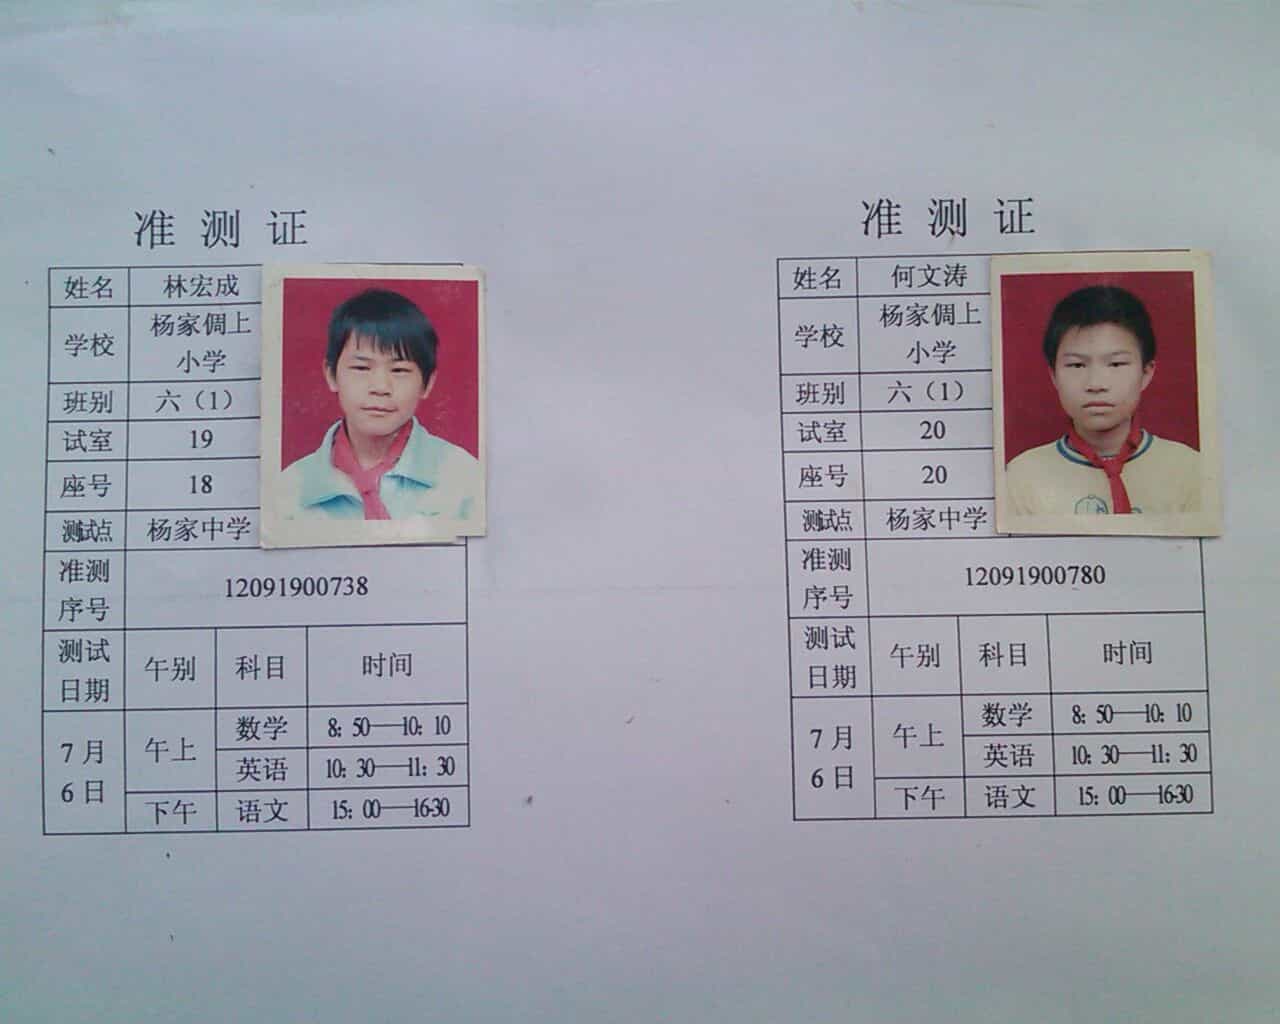 准测证
姓名 林宏成
学校 杨家倜上
小学
班别 六（1）
试室 19
座号 18
测试点 杨家中学
准测
序号
12091900738
测试
日期
午别 科目 时间
7月
6日
午上
数学 8：50—10：10
英语 10：30—11：30
下午 语文 15：00—16-30
准测证
姓名 何文涛
学校 杨家倜上
小学
班别 六（1）
试室 20
座号 20
测试点 杨家中学
准测
序号
12091900780
测试
日期
午别 科目 时间
7月
6日
午上
数学 8：50—10：10
英语 10：30—11：30
下午 语文 15：00—16-30